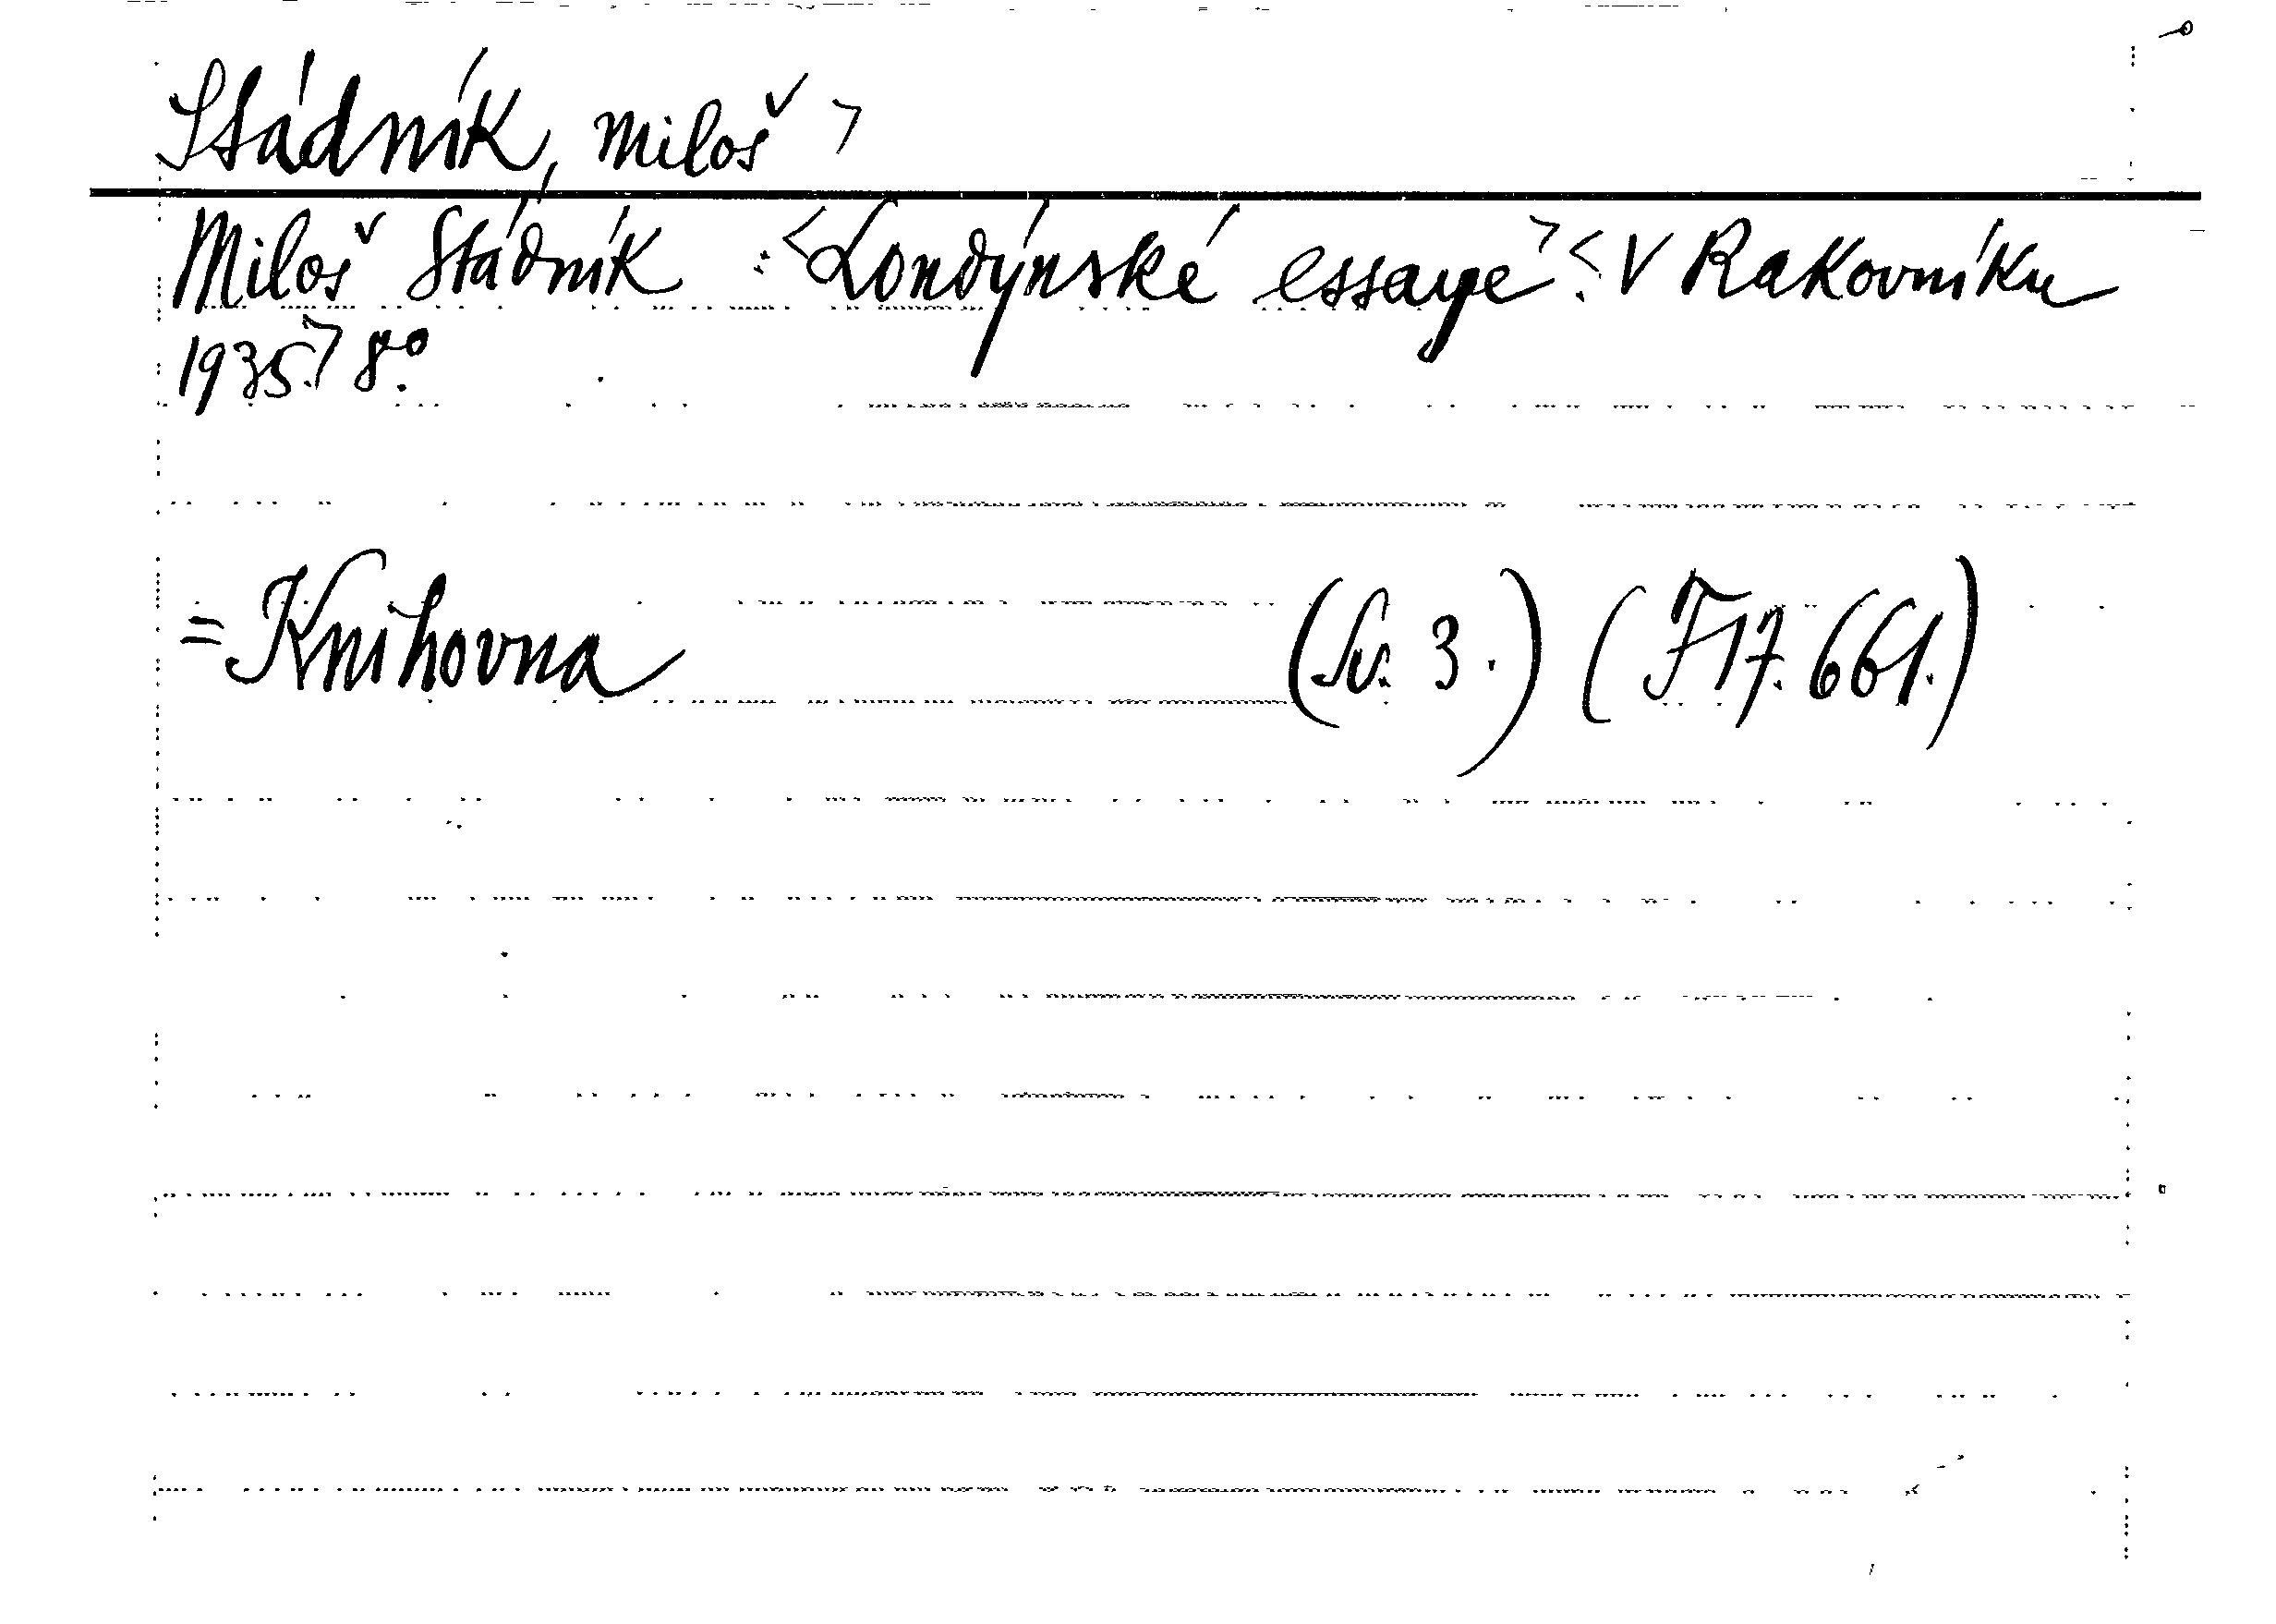 Stádník, Miloš >
Miloš Stádník : <Londýnské essaye> <. V Rakovníku
1935.> 8°.
= Knihovna (Sv. 3.) (F 17.661.)